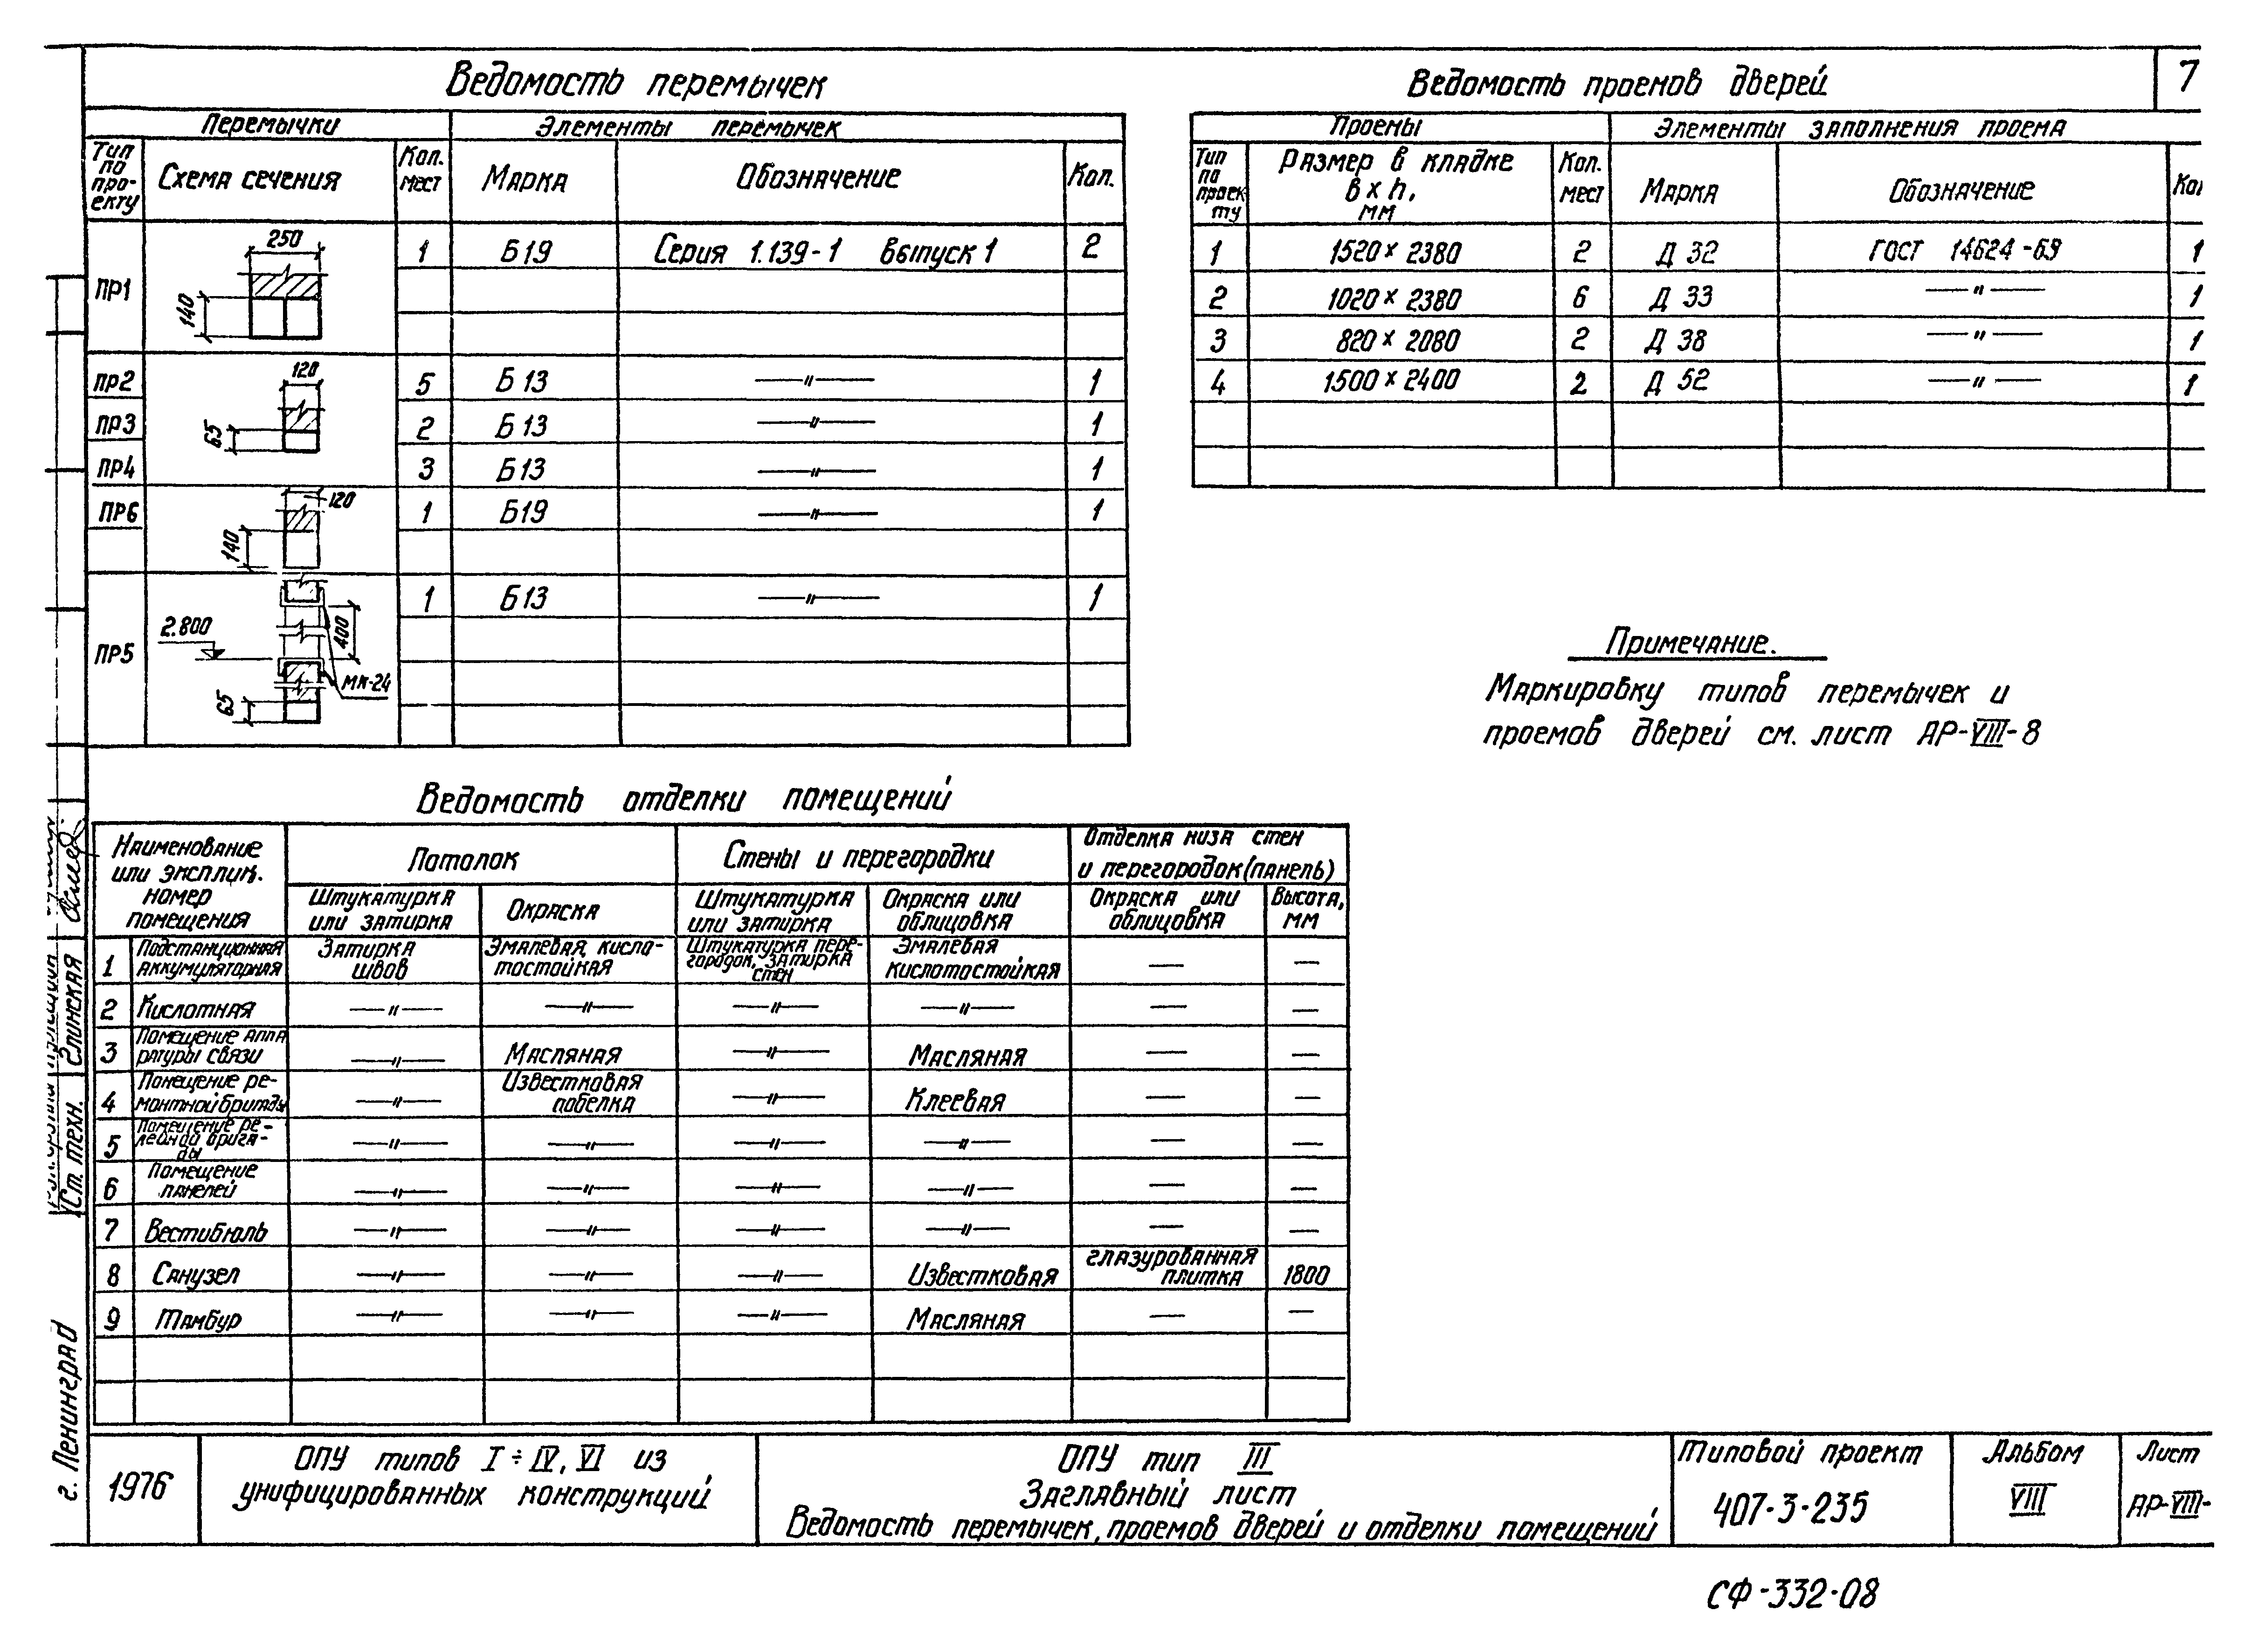 7
Ведомость перемычек
Перемычки Элементы перемычек
Тип по про-екту Схема сечения Кол. мест Марка Обозначение Кол.
ПР1 250 140 1 Б19 Серия 1.139-1 выпуск 1 2
ПР2 120 5 Б13 —"— 1
ПР3 65 2 Б13 —"— 1
ПР4 3 Б13 —"— 1
ПР6 120 140 1 Б19 —"— 1
ПР5 2.800 400 МК-24 65 1 Б13 —"— 1
Ведомость проемов дверей
Проемы Элементы заполнения проема
Тип по проек ту Размер в кладке в х h, мм Кол. мест Марка Обозначение Кол
1 1520 х 2380 2 Д 32 ГОСТ 14624-69 1
2 1020 х 2380 6 Д 33 —"— 1
3 820 х 2080 2 Д 38 —"— 1
4 1500 х 2400 2 Д 52 —"— 1
Примечание.
Маркировку типов перемычек и
проемов дверей см. лист АР-VIII-8
Ведомость отделки помещений
Наименование или эксплик. номер помещения Потолок Стены и перегородки Отделка низа стен и перегородок (панель)
Штукатурка или затирка Окраска Штукатурка или затирка Окраска или облицовка Окраска или облицовка Высота, мм
1 Подстанционная аккумуляторная Затирка швов Эмалевая кисло-тостойкая Штукатурка пере-городок, затирка стен Эмалевая кислотостойкая — —
2 Кислотная —"— —"— —"— —"— — —
3 Помещение аппа ратуры связи —"— Масляная —"— Масляная — —
4 Помещение ре-монтной бригады —"— Известковая побелка —"— Клеевая — —
5 Помещение ре-лейной брига-ды —"— —"— —"— —"— — —
6 Помещение панелей —"— —"— —"— —"— — —
7 Вестибюль —"— —"— —"— —"— — —
8 Санузел —"— —"— —"— Известковая глазурованная плитка 1800
9 Тамбур —"— —"— —"— Масляная — —
Ст. техн. Глинская
г. Ленинград
1976
ОПУ типов I÷IV, VI из
унифицированных конструкций
ОПУ тип III
Заглавный лист
Ведомость перемычек, проемов дверей и отделки помещений
Типовой проект
407-3-235
Альбом
VIII
Лист
АР-VIII-
СФ-332-08